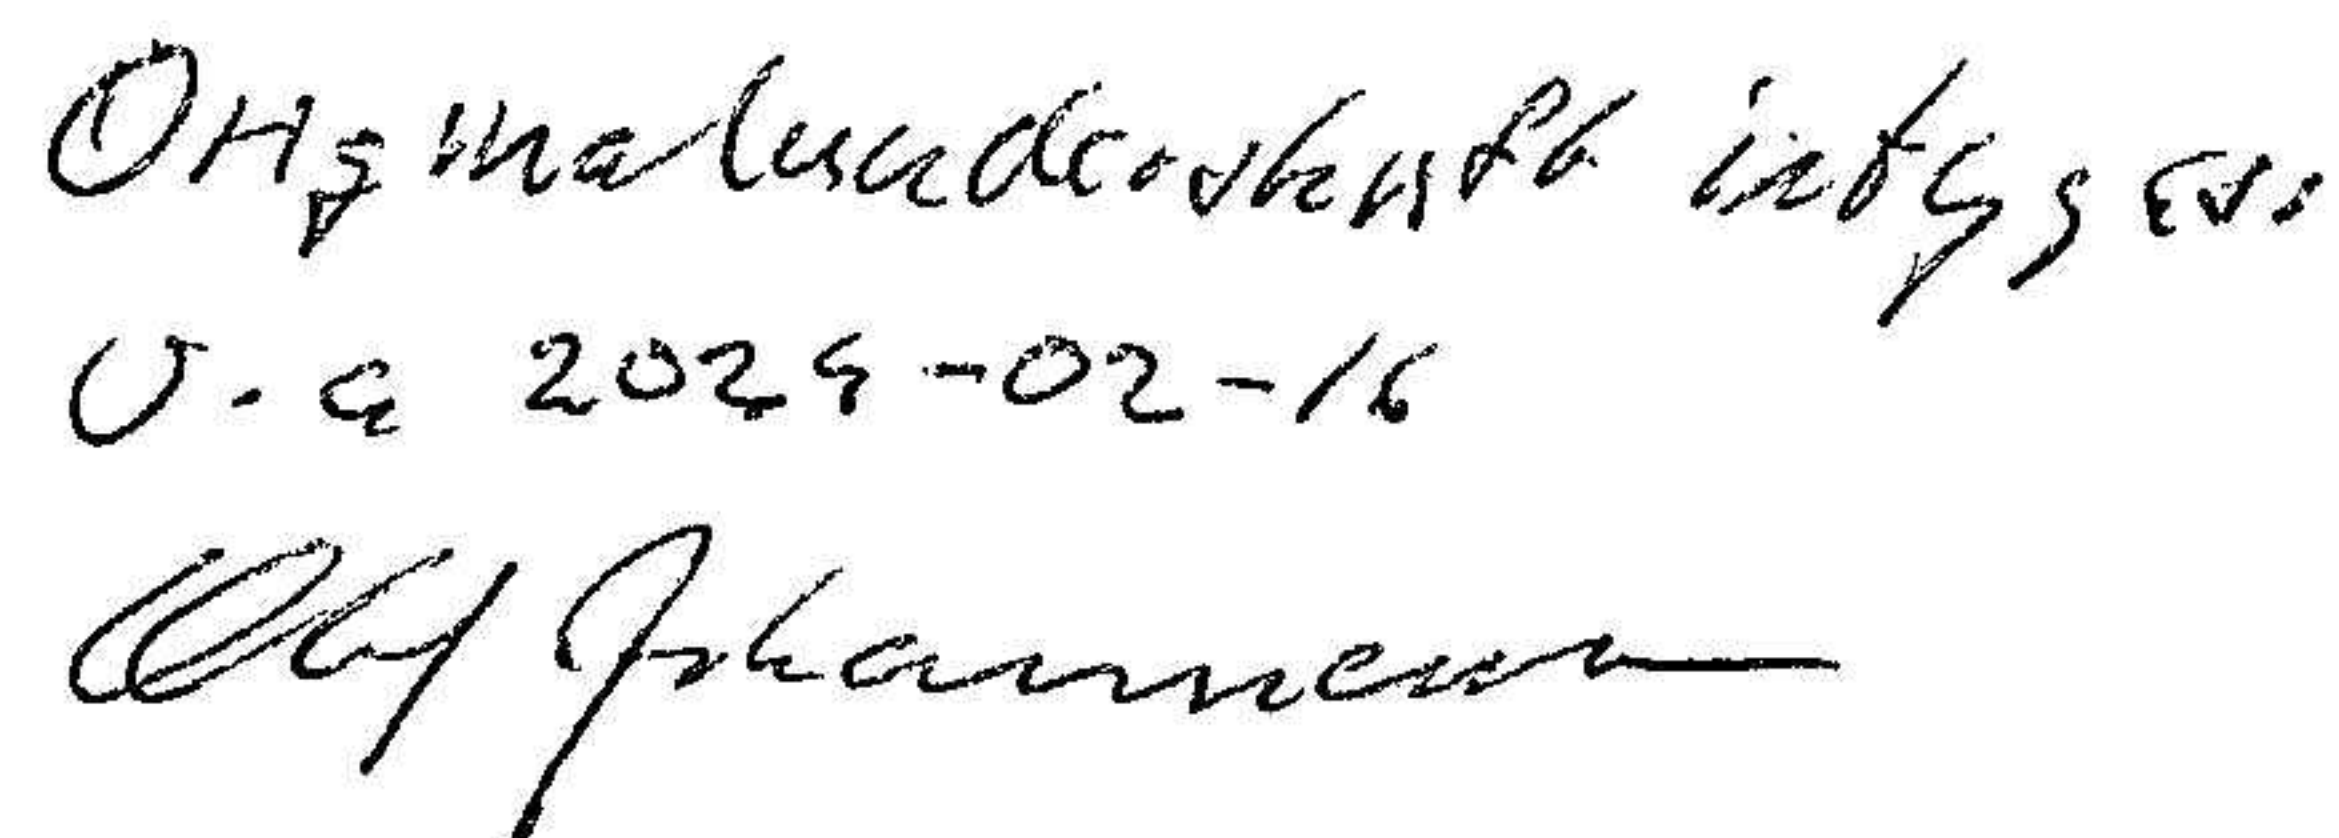 Originalunderskrift intygas:
U.a 2024-02-16
Olof Johannesson